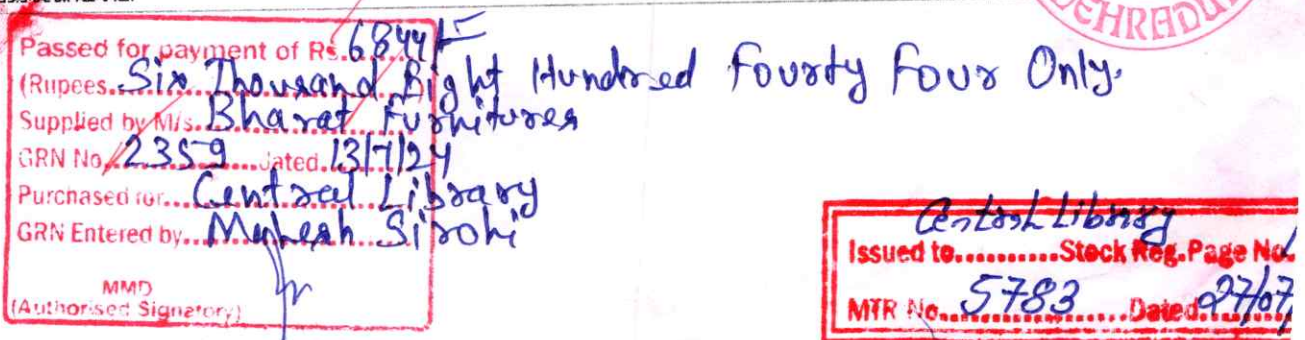 DEHRADU
Passed for payment of Rs. 6844/-
(Rupees. Six Thousand Eight Hundred Fourty Four Only.
Supplied by M/s. Bharat Furnitures
GRN No. 2359 dated. 13/7/24
Purchased for... Central Library
GRN Entered by.. Mahesh Sirohi
MMD
(Authorised Signatory)
Central Library
Issued to...........Stock Reg. Page No.
MTR No. 5783 Dated 27/07/